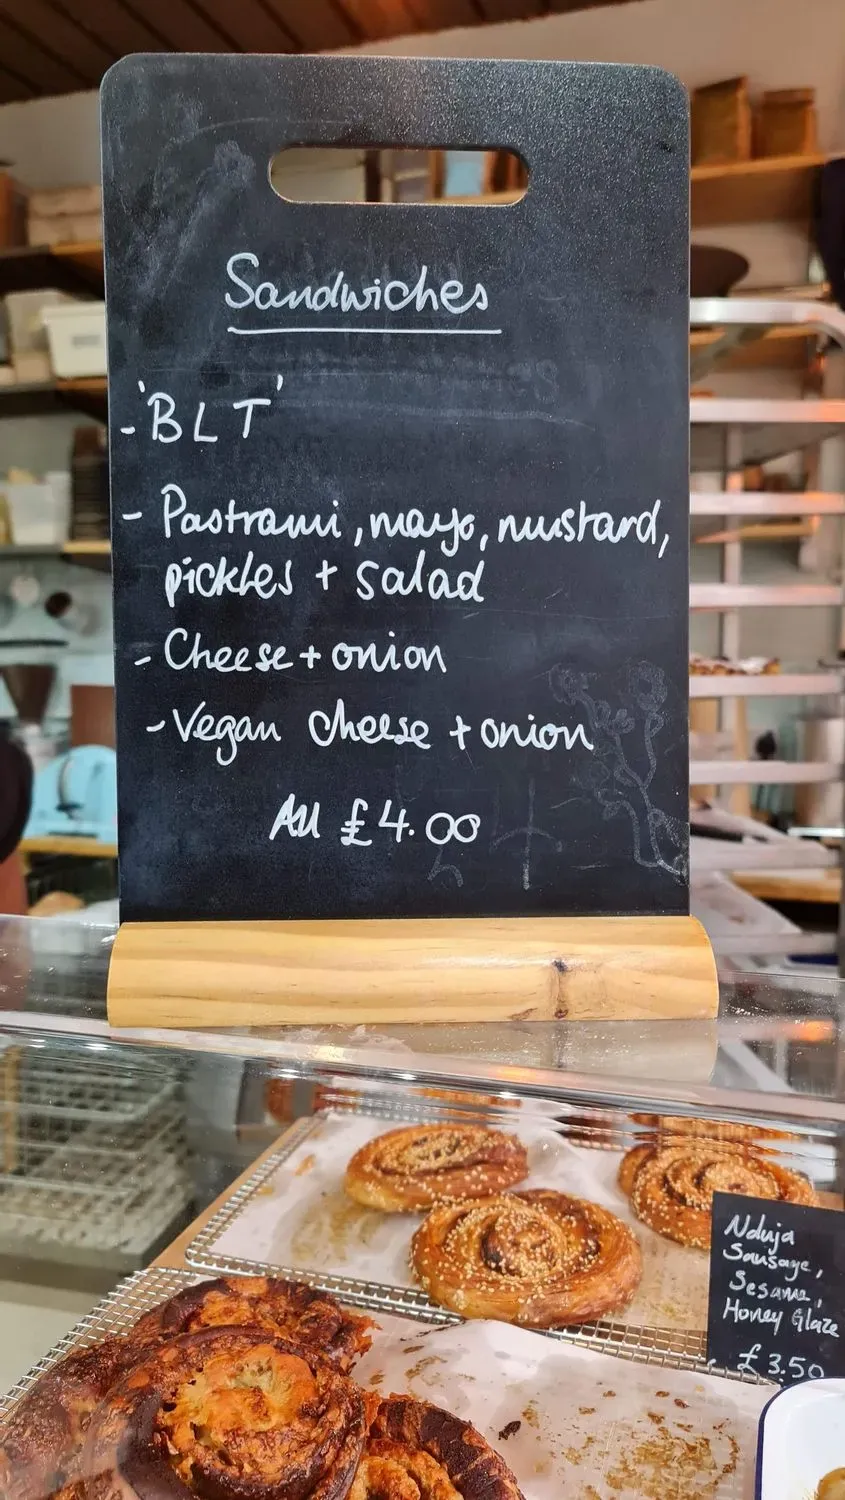 Sandwiches
- 'BLT'
- Pastrami, mayo, mustard,
pickles + salad
- Cheese + onion
- Vegan cheese + onion
All £4.00
Nduja
Sausage,
Sesame,
Honey Glaze
£3.50